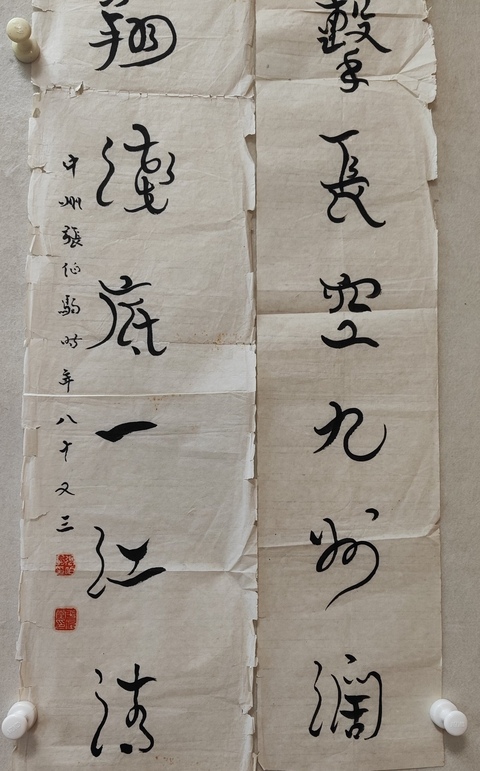 擊長空九州濶
翔淺底一江清
中州張伯駒時年八十又三